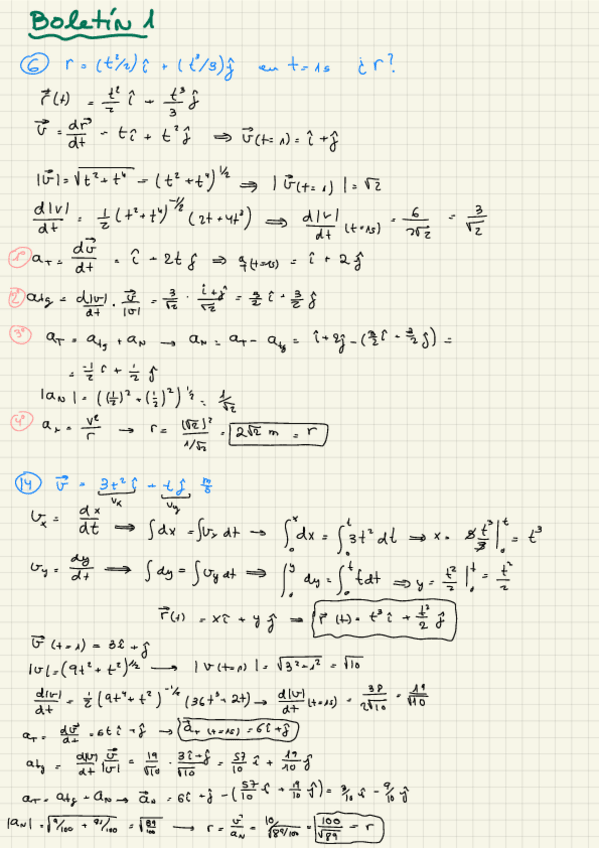 Boletín 1
⑥ r = (t²/2) î + (t³/3) ĵ en t = 1s ¿r?
r⃗(t) = t²/2 î + t³/3 ĵ
v⃗ = dr⃗/dt = t î + t² ĵ ⇒ v⃗(t=1) = î + ĵ
|v⃗| = √(t² + t⁴) = (t² + t⁴)^1/2 ⇒ |v⃗(t=1)| = √2
d|v|/dt = 1/2 (t² + t⁴)^-1/2 (2t + 4t³) ⇒ d|v|/dt (t=1s) = 6/2√2 = 3/√2
1º a_T = dv⃗/dt = î + 2t ĵ ⇒ a_T(t=1s) = î + 2 ĵ
2º a_tg = d|v|/dt · v⃗/|v| = 3/√2 · (î + ĵ)/√2 = 3/2 î + 3/2 ĵ
3º a_T = a_tg + a_N → a_N = a_T - a_tg = î + 2ĵ - (3/2 î - 3/2 ĵ) =
= -1/2 î + 1/2 ĵ
|a_N| = ((1/2)² + (1/2)²)^1/2 = 1/√2
4º a_N = v²/r → r = (√2)²/(1/√2) = 2√2 m = r
⑭ v⃗ = 3t² î + t ĵ m/s
v_x v_y
v_x = dx/dt ⇒ ∫dx = ∫v_x dt → ∫₀ˣ dx = ∫₀ᵗ 3t² dt ⇒ x = 3 t³/3 |₀ᵗ = t³
v_y = dy/dt ⇒ ∫dy = ∫v_y dt ⇒ ∫₀ʸ dy = ∫₀ᵗ t dt ⇒ y = t²/2 |₀ᵗ = t²/2
r⃗(t) = x î + y ĵ ⇒ r⃗(t) = t³ î + t²/2 ĵ
v⃗(t=1) = 3î + ĵ
|v| = (9t² + t²)^1/2 → |v(t=1)| = √(3² + 1²) = √10
d|v|/dt = 1/2 (9t⁴ + t²)^-1/2 (36t³ + 2t) → d|v|/dt (t=1s) = 38/2√10 = 19/√10
a_T = dv⃗/dt = 6t î + ĵ → a⃗_T (t=1s) = 6î + ĵ
a_tg = d|v|/dt v⃗/|v| = 19/√10 · (3î + ĵ)/√10 = 57/10 î + 19/10 ĵ
a_T = a_tg + a_N → a⃗_N = 6î + ĵ - (57/10 î + 19/10 ĵ) = 3/10 î - 9/10 ĵ
|a_N| = √(9/100 + 81/100) = √(89/100) → r = v²/a_N = 10/√(89/100) = 100/√89 = r